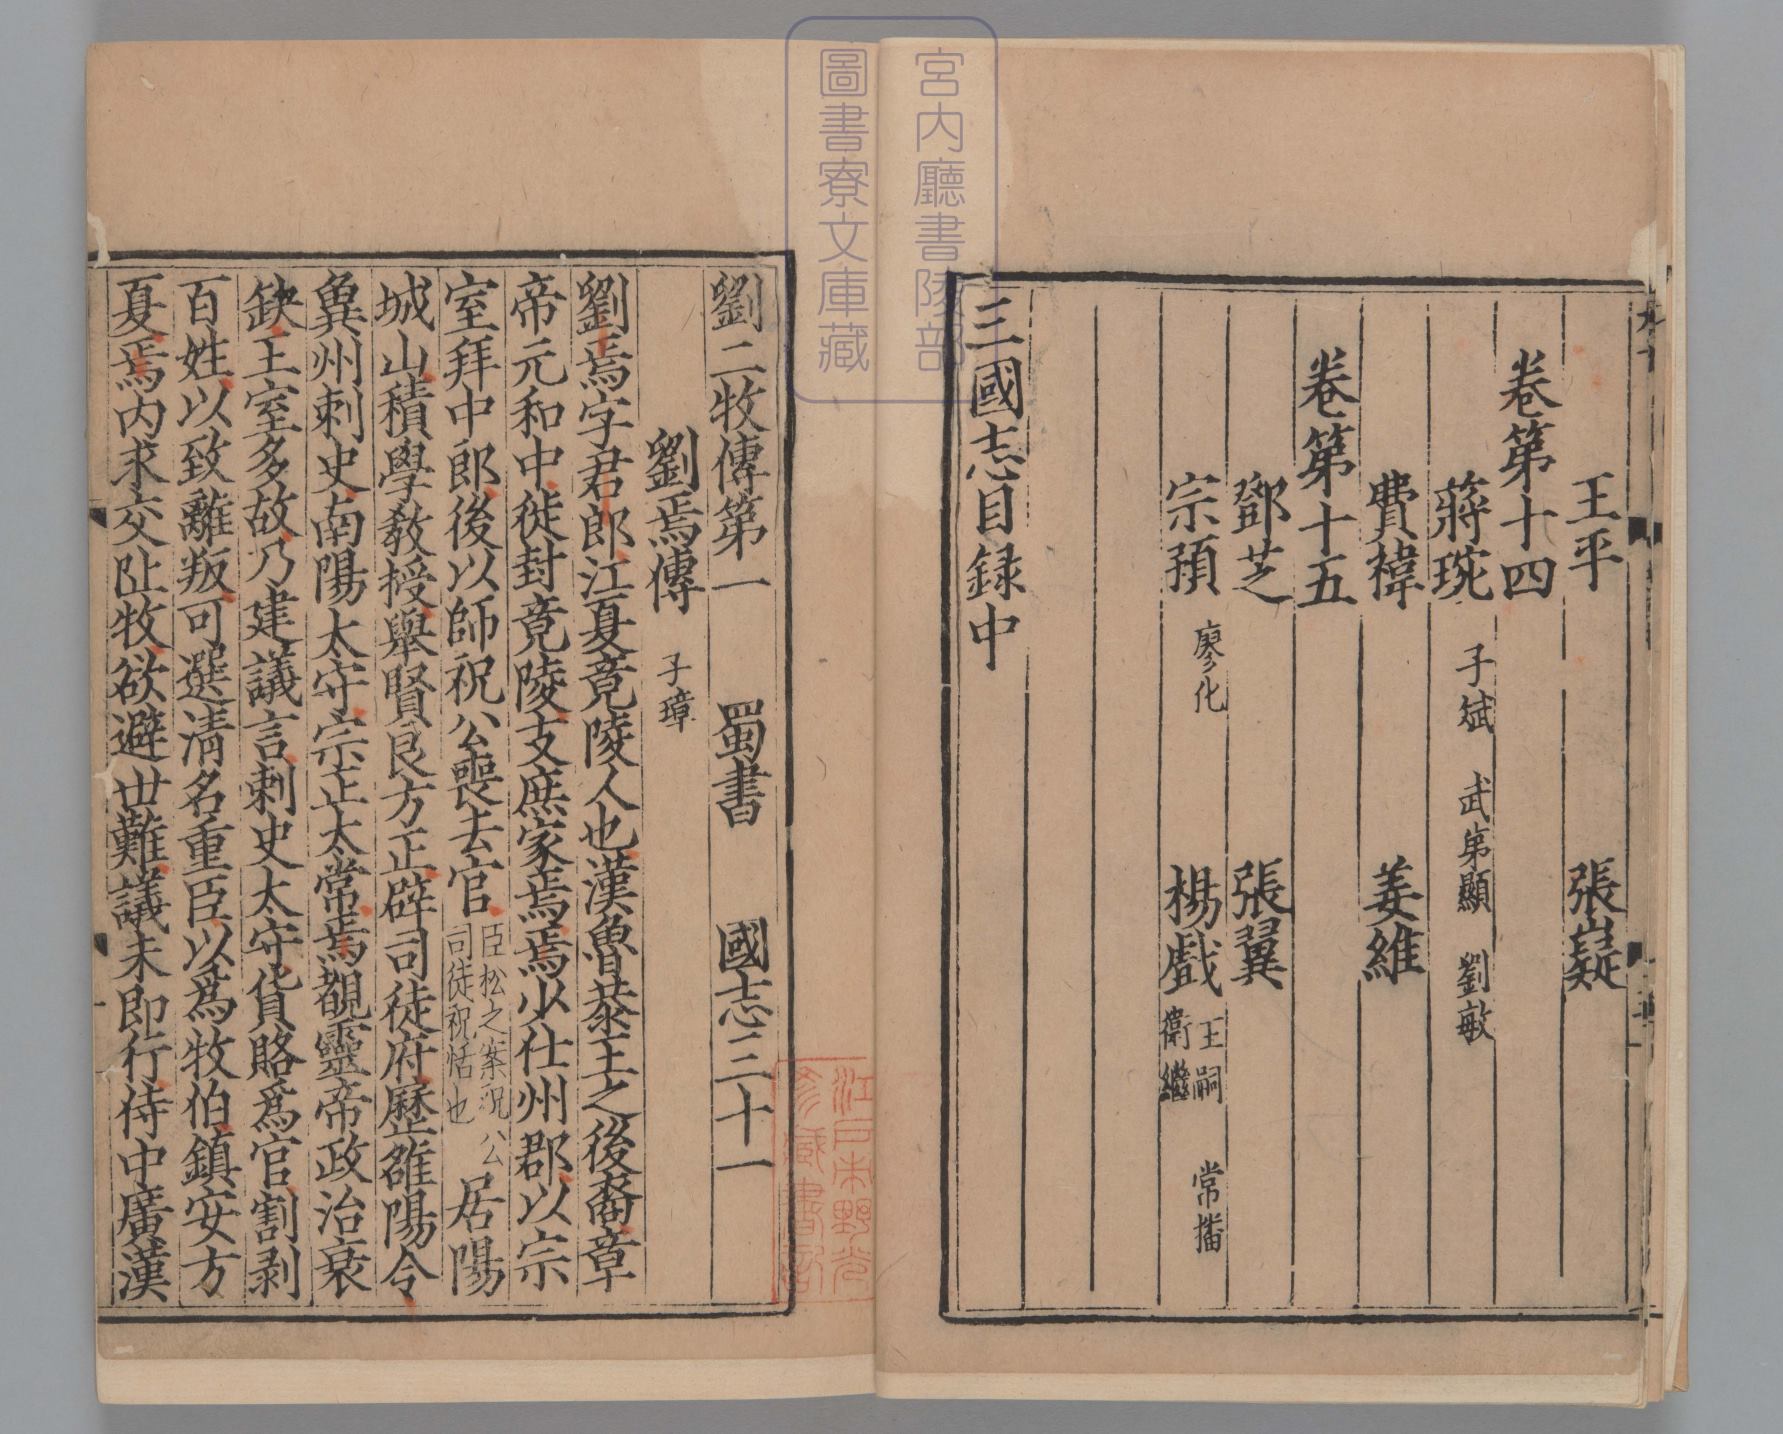 宮内廳書陵部
圖書寮文庫藏
王平 張嶷
卷第十四
蔣琬 子斌 武弟顯 劉敏
費禕 姜維
卷第十五
鄧芝 張翼
宗預 廖化 楊戲 王嗣 常播 衛繼
三國志目録中
劉二牧傳第一 蜀書 國志三十一
劉焉傳 子璋
劉焉字君郎江夏竟陵人也漢魯恭王之後裔章
帝元和中徙封竟陵支庶家焉焉少仕州郡以宗
室拜中郎後以師祝公喪去官臣松之案祝公司徒祝恬也居陽
城山積學敎授舉賢良方正辟司徒府歷雒陽令
兾州刺史南陽太守宗正太常焉覩靈帝政治衰
缺王室多故乃建議言刺史太守貨賂爲官割剥
百姓以致離叛可選清名重臣以爲牧伯鎮安方
夏焉内求交阯牧欲避世難議未即行侍中廣漢